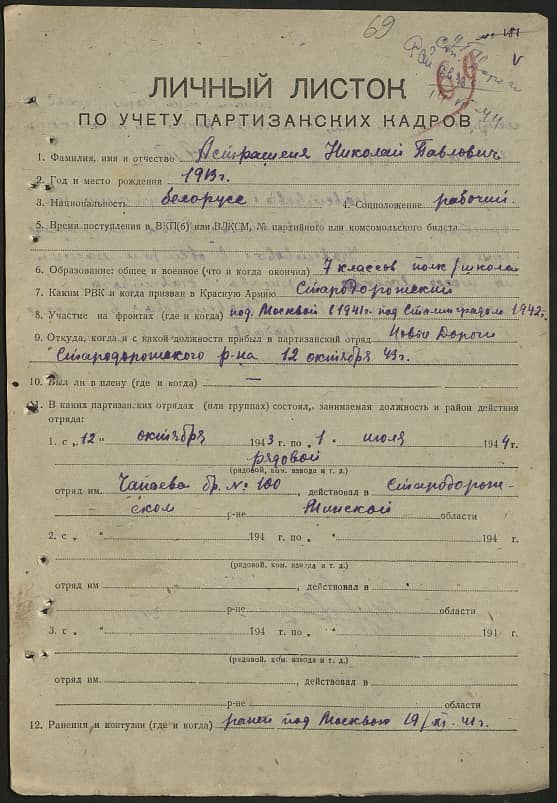 69
№ 181
V
ЛИЧНЫЙ ЛИСТОК
ПО УЧЕТУ ПАРТИЗАНСКИХ КАДРОВ
1. Фамилия, имя и отчество Николай Павлович
2. Год и место рождения 1913г.
3. Национальность белорусс 4. Соцположение рабочий.
5. Время поступления в ВКП(б) или ВЛКСМ, № партийного или комсомольского билета
6. Образование: общее и военное (что и когда окончил) 7 классов полк/школа
7. Каким РВК и когда призван в Красную Армию Стародорожский
8. Участие на фронтах (где и когда) под. Москвой 1941г. под Сталинградом 1942г.
9. Откуда, когда и с какой должности прибыл в партизанский отряд Новые Дороги
Стародорожского р-на 12 октября 43г.
10. Был ли в плену (где и когда) —
11. В каких партизанских отрядах (или группах) состоял, занимаемая должность и район действия
отряда:
1. с „12" октября 1943 г. по „1. июля 1944 г.
рядовой
(рядовой, ком. взвода и т. д.)
отряд им. Чапаева бр. № 100, действовал в Стародорож-
ском р-не Минской области
2. с „ " 194 г. по „ " 194 г.
(рядовой, ком. взвода и т. д.)
отряд им , действовал в
р-не области
3. с „ " 194 г. по „ " 194 г.
(рядовой, ком. взвода и т. д.)
отряд им. , действовал в
р-не области
12. Ранения и контузии (где и когда) ранен под Москвою 19/XI-41г.